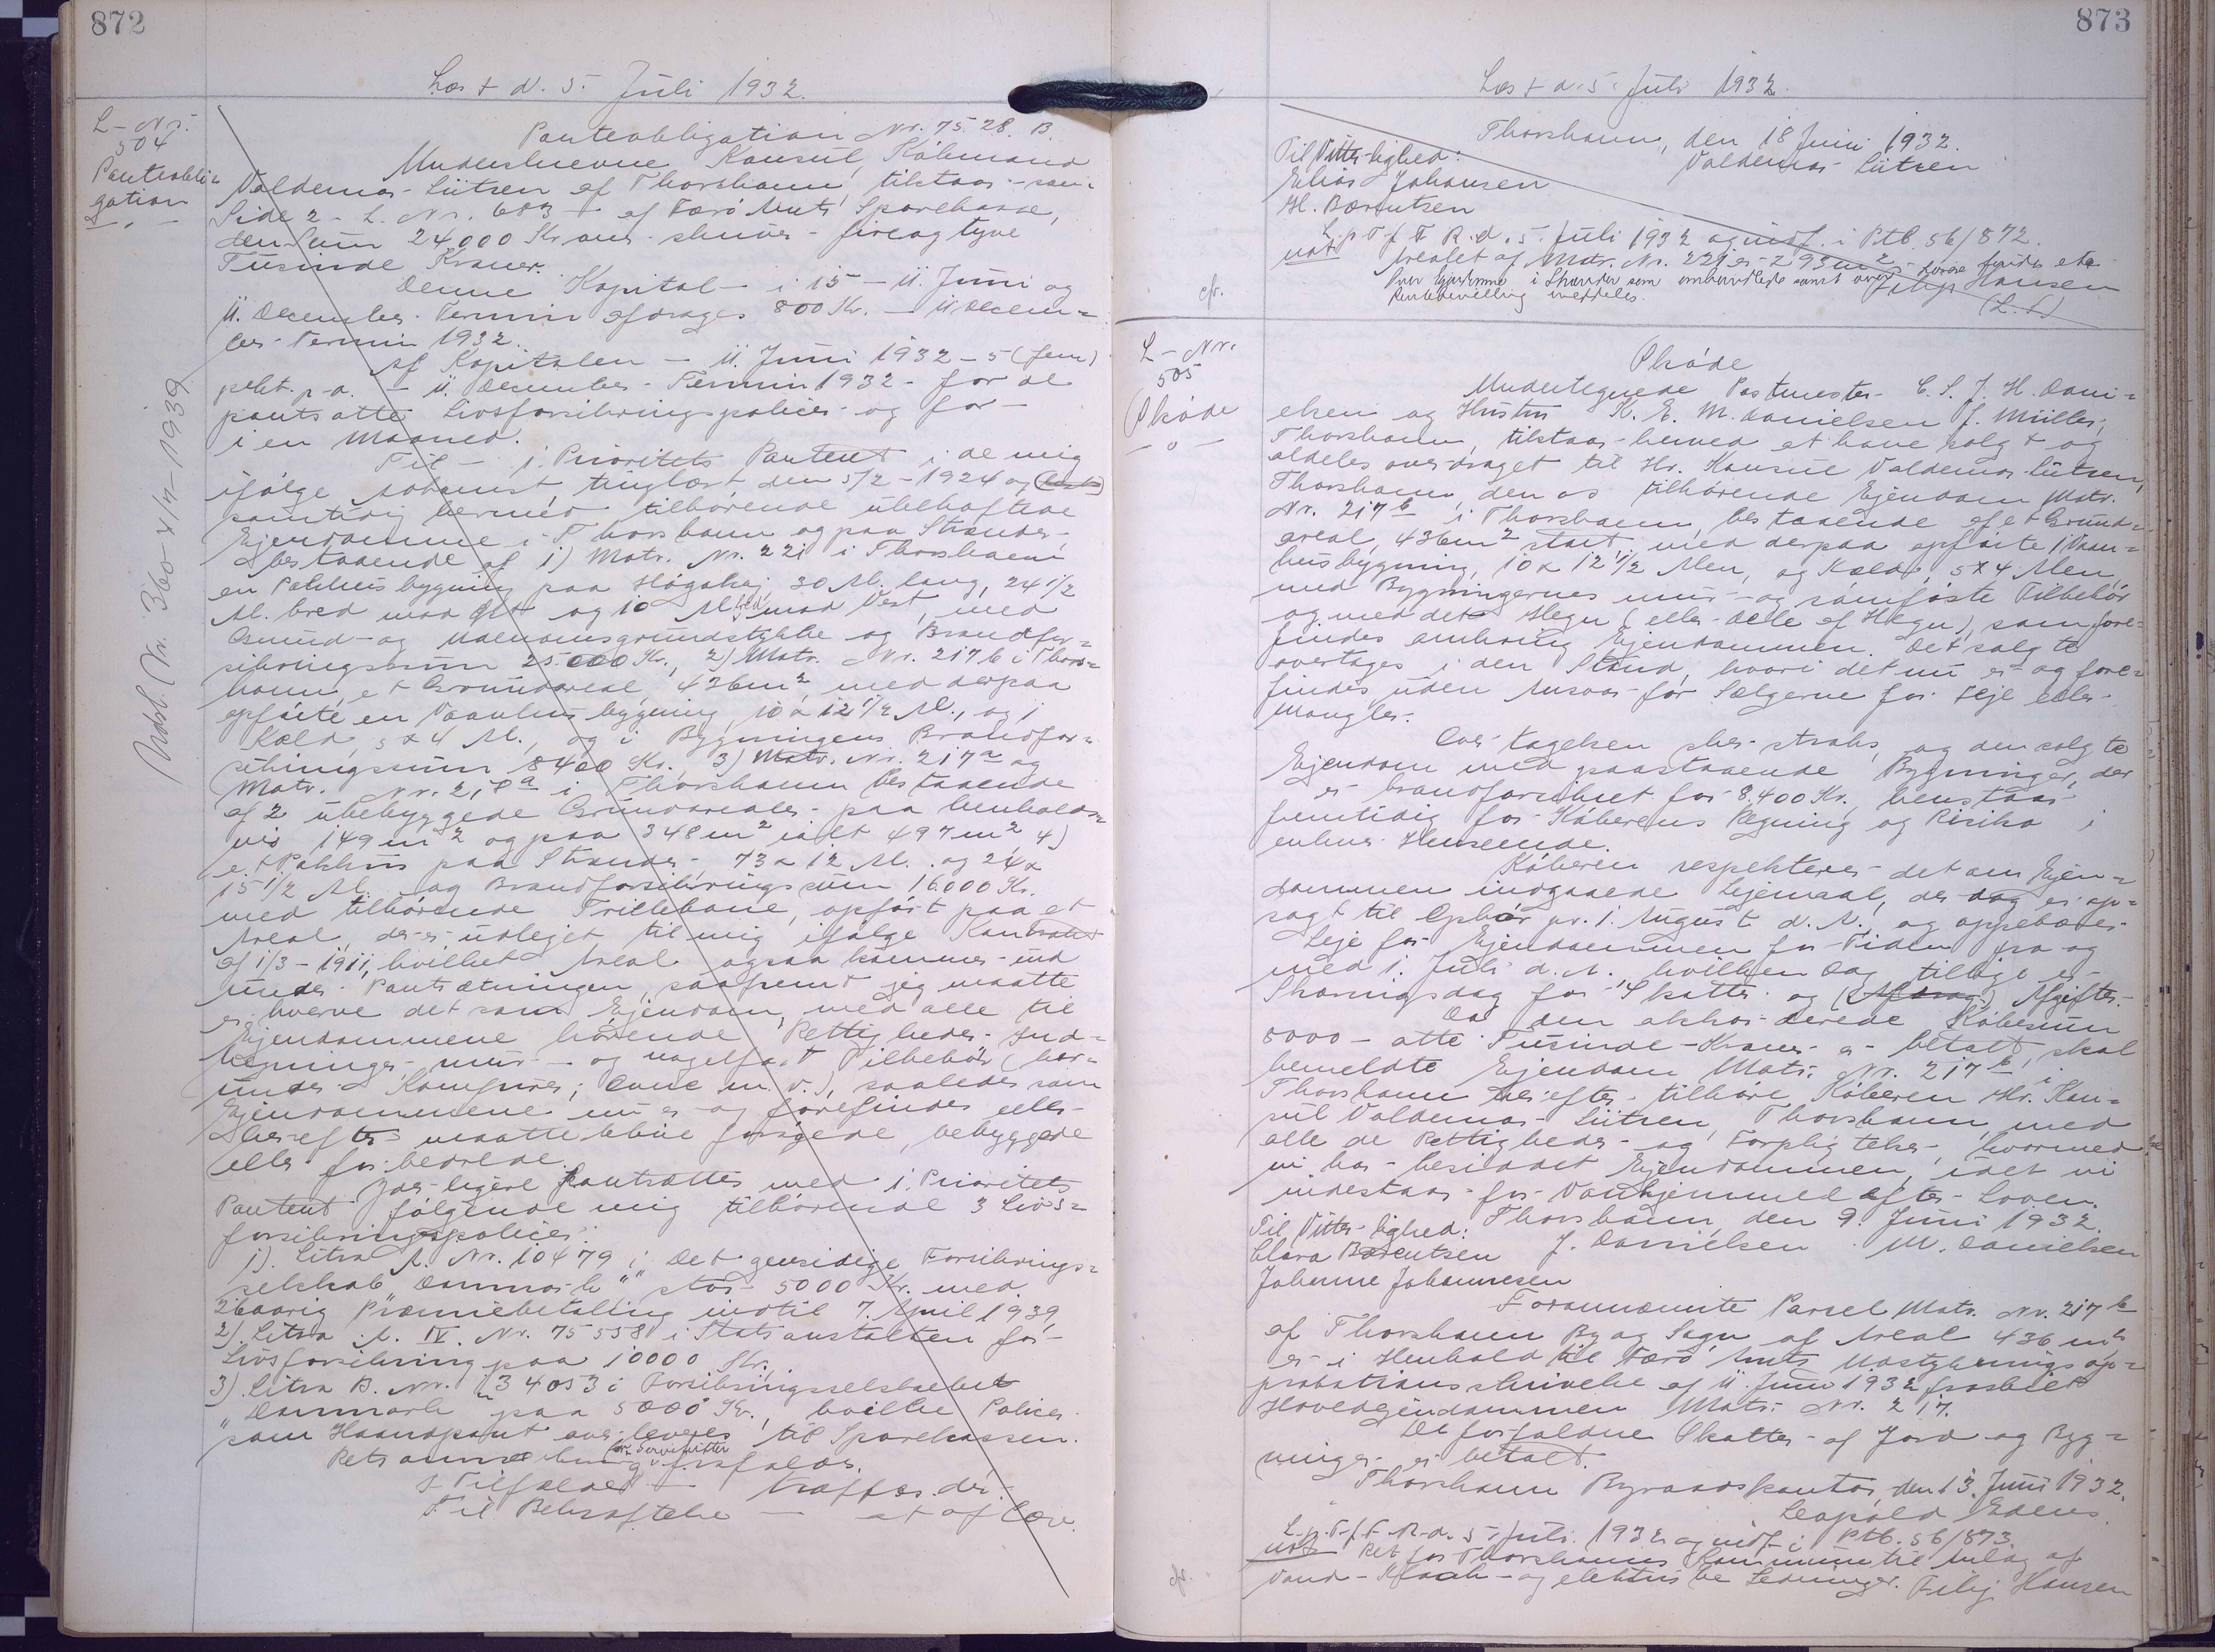 872
Læst d. 5. Juli 1932.
L-Nr.
504
Panteobli-
gation
Panteobligation Nr. 75.28. B.
Underskrevne Konsul, Købmand
Valdemar Lützen af Thorshavn, tilstaar - som
Side 2 - L. Nr. 683 - af Færø Amts Sparekasse,
den Sum 24,000 Kroner skriver - fireogtyve
Tusinde Kroner.
Denne Kapital - i 15 - 11. Juni og
11. December Termin afdrages 800 Kr. - 11 Decem-
ber Termin 1932.
Af Kapitalen - 11. Juni 1932 - 5 (fem)
pCt. p.a. - 11. December - Termin 1932 - for de
pantsatte Livsforsikringspolicer og for
i en Maaned.
Til - 1. Prioritets Panteret i de mig
ifølge Adkomst, tinglæst den 5/2 - 1924 og
samtidig hermed tilhørende ubehæftede
Ejendomme i Thorshavn og paa Strænder,
bestaaende af 1) Matr. Nr. 221 i Thorshavn
en Pakhusbygning paa Høgahej 30 Al. lang, 24 1/2
Al. bred mod Øst og 10 Al. bred mod Vest, med
Grund- og Udenomsgrundstykke og Brandfor-
sikringssum 25.000 Kr., 2) Matr. Nr. 217 b i Thors-
havn, et Grundareal, 436 m2, med derpaa
opførte en Vaanhusbygning, 10 x 12 1/2 Al., og 1
Kæld, 5 x 4 Al., og i Bygningens Brandfor-
sikringssum 8400 Kr. 3) Matr. Nr. 217 a og
Matr. Nr. 218 a i Thorshavn bestaaende
af 2 ubebyggede Grundarealer paa henholds-
vis 149 m2 og paa 348 m2 ialt 497 m2 4)
et Pakhus paa Strænder, 73 x 12 Al. og 24 x
15 1/2 Al. og Brandforsikringssum 16.000 Kr.
med tilhørende Trillebane, opført paa et
Areal, der er udlejet til mig ifølge Kontrakt
af 1/3 - 1911, hvilket Areal ogsaa kommer ind
under Pantsætningen, saafremt jeg maatte
erhverve det som Ejendom, med alle til
Ejendommene hørende Rettigheder, Ind-
hegninger, mur- og nagelfast Tilbehør (her-
under Komfurer, Ovne m.v.), saaledes som
Ejendommene nu er og forefindes eller
herefter maatte blive forøgede, bebyggede
eller forbedrede.
Yderligere pantsættes med 1. Prioritets
Panteret følgende mig tilhørende 3 Livs-
forsikringspolicer:
1). Litra A. Nr. 10479 i "Det gensidige Forsikrings-
selskab Danmark", stor 5000 Kr. med
26aarig Præmiebetaling indtil 7. April 1939,
2). Litra A. IV. Nr. 75538 i Statsanstalten for
Livsforsikring paa 10000 Kr.
3). Litra B. Nr. 34053 i Forsikringsselskabet
"Danmark" paa 5000 Kr., hvilke Policer
som Haandpant overleveres til Sparekassen.
Retsanmærkning om Servitutter frafaldes.
I Tilfælde - træffes der.
Til Bekræftelse - at aflæse.
Udsl. Nr. 360 4/7 - 1939
873
Læst d. 5. Juli 1932.
Thorshavn, den 18 Juni 1932.
Valdemar Lützen
Til Vitterlighed:
Elias Johansen
H. Bærentsen
L. p. T. f. F. R. d. 5. Juli 1932 og indf. i Ptb. 56/872.
not Arealet af Matr. Nr. 221 er 293 m2
Filip Hansen
(L.S.)
cfr.
L-Nr.
505
Skøde
Skøde
Undertegnede Postmester C. S. J. H. Dani-
elsen og Hustru K. E. M. Danielsen f. Müller,
Thorshavn, tilstaar herved at have solgt og
aldeles overdraget til Hr. Konsul Valdemar Lützen,
Thorshavn, den os tilhørende Ejendom Matr.
Nr. 217 b i Thorshavn, bestaaende af et Grund-
areal, 436 m2 stort, med derpaa opførte 1 Vaan-
husbygning, 10 x 12 1/2 Alen, og Kæld, 5 x 4 Alen,
med Bygningernes mur- og sømfaste Tilbehør
og med det Hegn (eller Dele af Hegn), som fore-
findes omkring Ejendommen. Det solgte
overtages i den Stand, hvori det nu er og fore-
findes, uden Ansvar for Sælgerne for Fejl eller
Mangler.
Overtagelsen sker straks, og den solgte
Ejendom med paastaaende Bygninger, der
er brandforsikret for 8.400 Kr., henstaar
fremtidig for Køberens Regning og Risiko i
enhver Henseende.
Køberen respekterer det om Ejen-
dommen indgaaede Lejemaal, der dog er op-
sagt til Ophør pr. 1. August d. A., og oppebærer
Leje for Ejendommen for Tiden fra og
med 1. Juli d. A., hvilken Dag tillige er
Skæringsdag for Skatter og (Afdrag) Afgifter.
Da den akkorderede Købesum
8000 - otte Tusinde - Kroner er betalt, skal
bemeldte Ejendom Matr. Nr. 217 b i
Thorshavn herefter tilhøre Køberen Hr. Kon-
sul Valdemar Lützen, Thorshavn, med
alle de Rettigheder og Forpligtelser, hvormed
vi har besiddet Ejendommen, idet vi
indestaar for Vanhjemmel efter Loven.
Thorshavn, den 9. Juni 1932.
Til Vitterlighed:
J. Danielsen M. Danielsen
Clara Bærentsen
Johanne Johannesen
Forannævnte Parcel Matr. Nr. 217 b
af Thorshavn By og Sogn af Areal 436 m2
er i Henhold til Færø Amts Udstyknings ap-
probationsskrivelse af 11. Juni 1932 fraskilt
Hovedejendommen Matr. Nr. 217.
De forfaldne Skatter af Jord og Byg-
ninger er betalt.
Thorshavn Byraadskontor, den 13. Juni 1932.
Leopold
L. p. T. f. F. R. d. 5. Juli 1932 og indf. i Ptb. 56/873.
not Ret for Thorshavns Kommune til Anlæg af
Vand-, Kloak- og elektriske Ledninger. Filip Hansen
cfr.